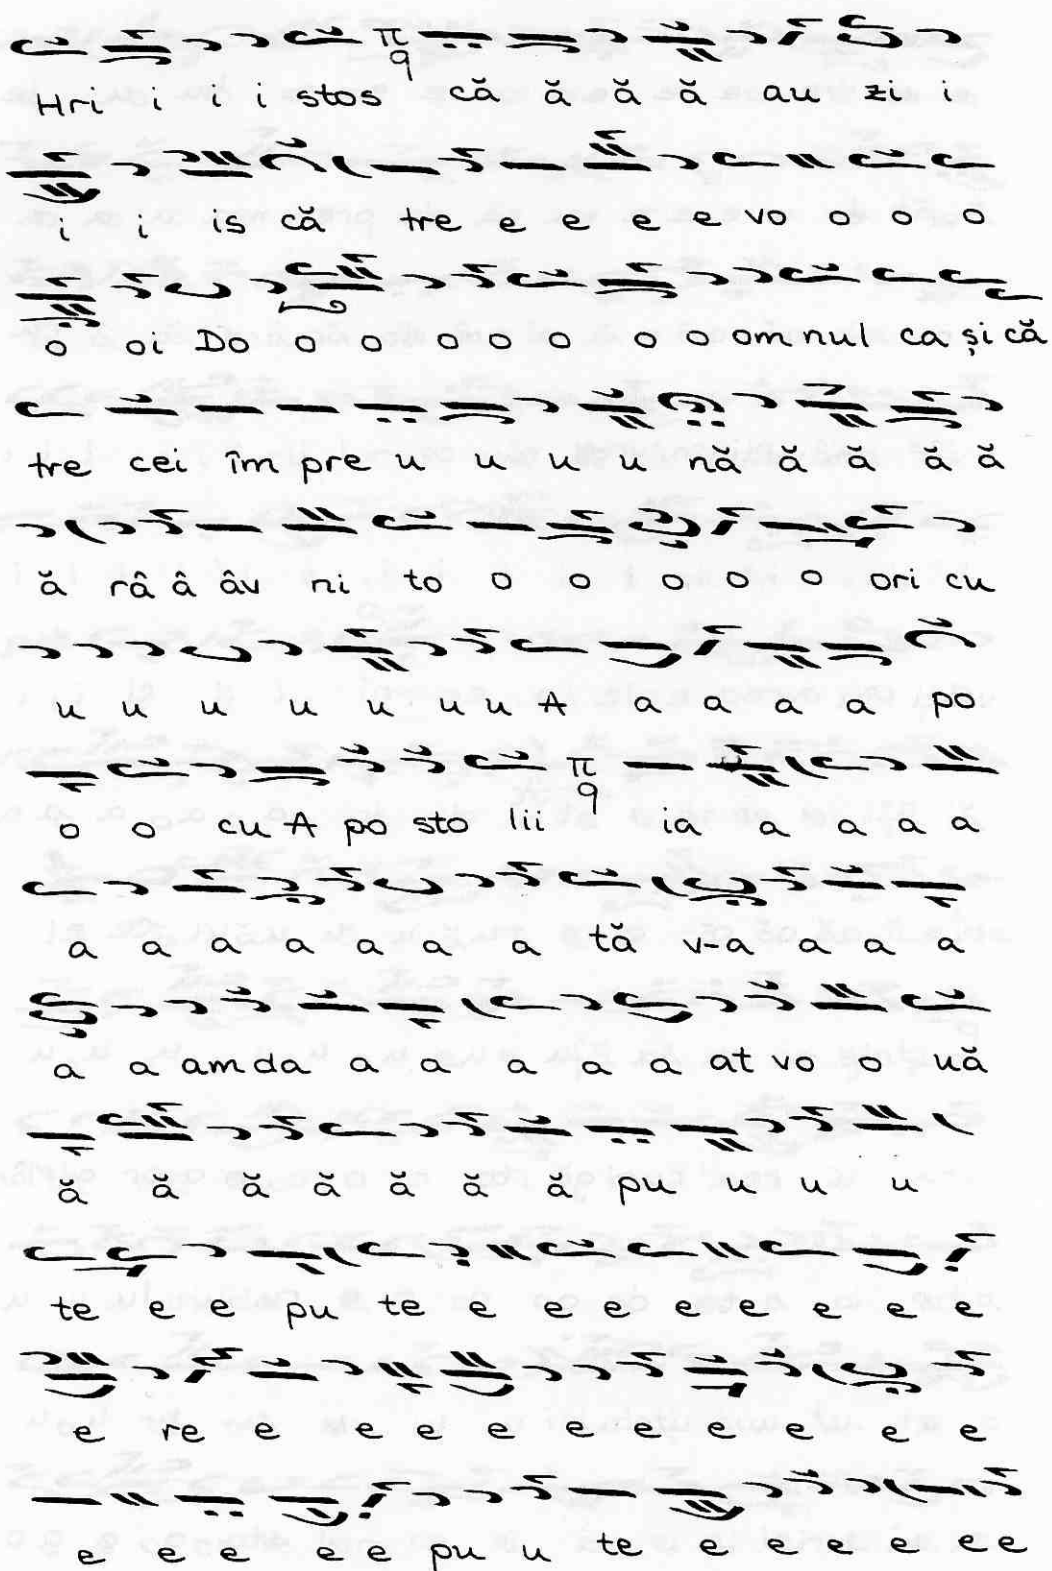 π
q
Hri i i i stos că ă ă ă au zi i
i i is că tre e e e e vo o o o
o oi Do o o o o o o o omnul ca și că
tre cei îm pre u u u u nă ă ă ă ă
ă râ â âv ni to o o o o o ori cu
u u u u u u u A a a a a po
π
q
o o cu A po sto lii ia a a a a
a a a a a a a tă v-a a a a
a a am da a a a a a at vo o uă
ă ă ă ă ă ă ă pu u u u
te e e pu te e e e e e e e e
e re e e e e e e e e e
e e e e e pu u te e e e e e e